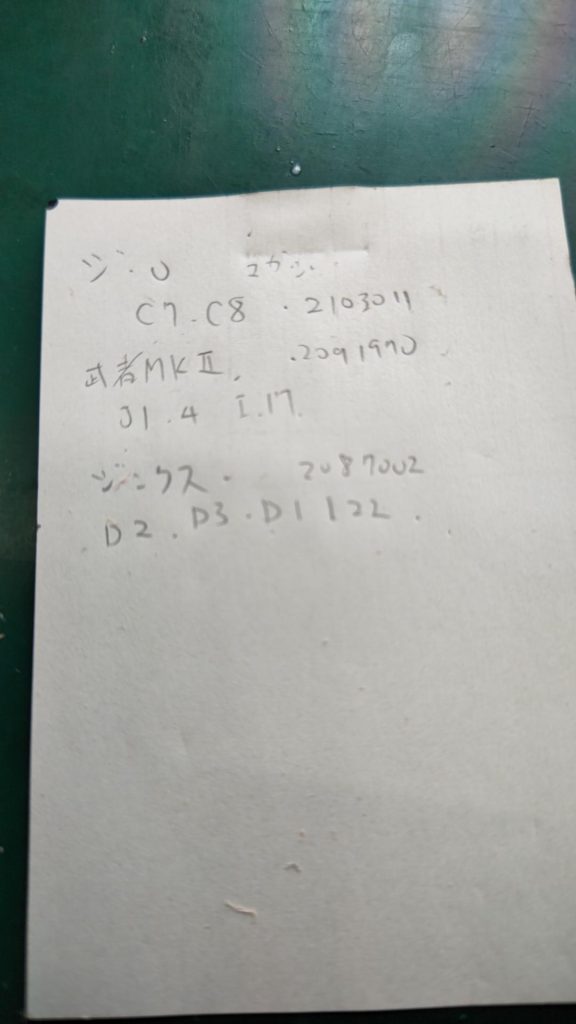 ジ・O
C7.C8 .2103011
武者MKⅡ. .2091970
J1.4 I.17.
ジンクス. 2087002
.D2.D3.D1 122.